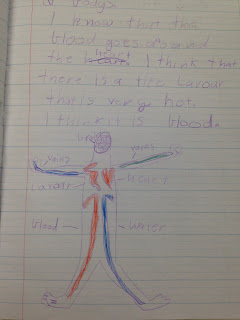 & bodys
I know that the
blood goes around
the heart I think that
there is a tire
that is very hot.
I think it is blood.
veins
veins
heart
blood
water